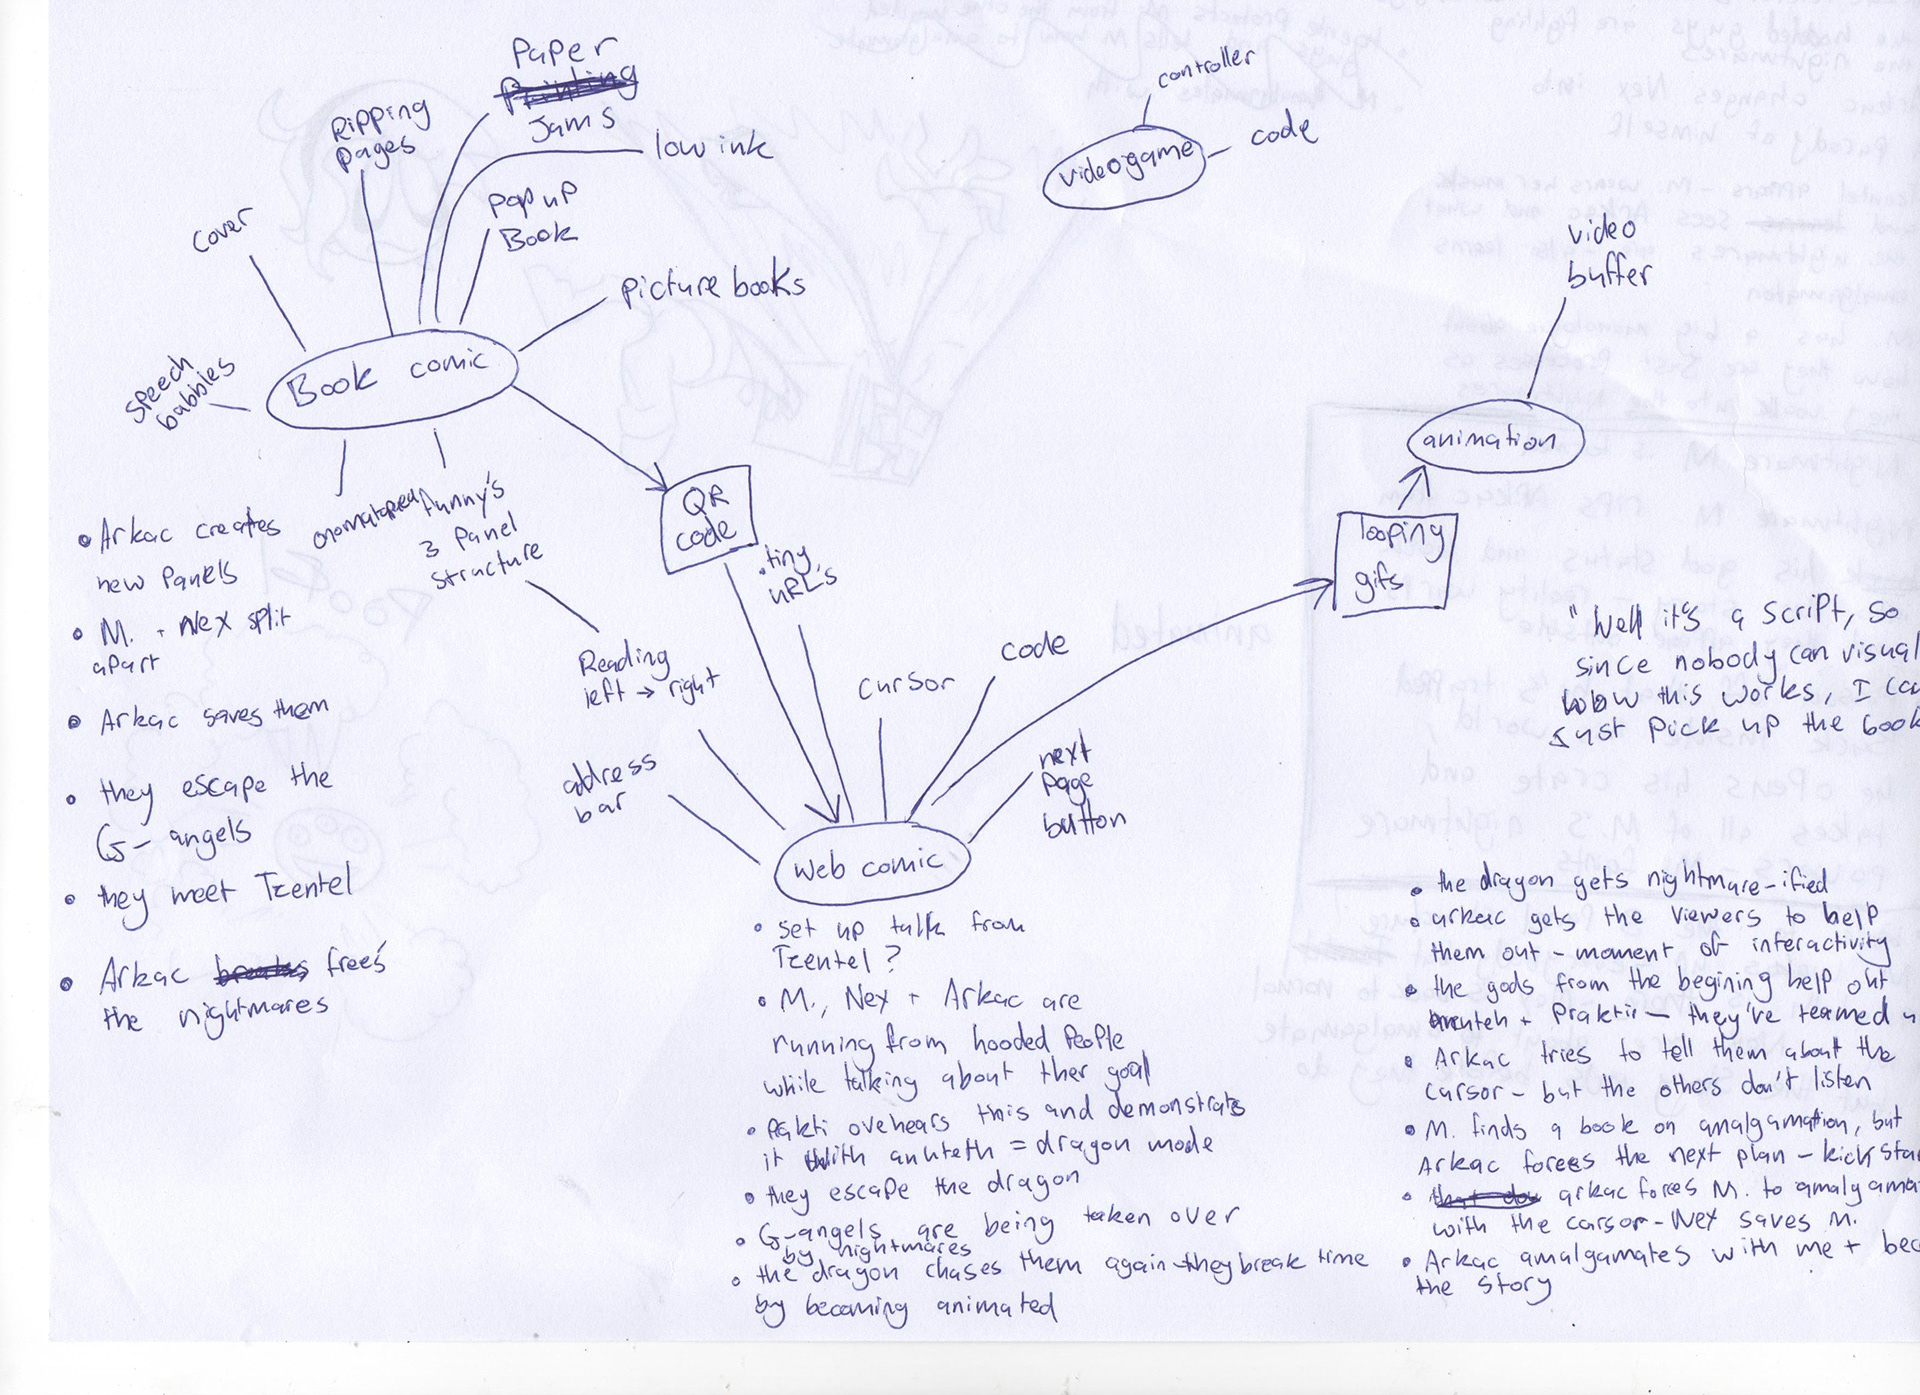 Paper
Printing
Jams
Ripping
pages
low ink
pop up
Book
cover
picture books
speech
bubbles
Book comic
onomatopea
Funny's
3 Panel
structure
controller
videogame
code
video
buffer
animation
QR
code
.tiny
URLs
looping
gifs
Reading
left → right
address
bar
cursor
code
next
page
button
Web comic
"Well it's a script, so
since nobody can visual
how this works, I can
just pick up the book
• Arkac creates
new panels
• M. + Nex split
apart
• Arkac saves them
• they escape the
G-angels
• they meet Tzentel
• Arkac breaks frees
the nightmares
• set up talk from
Tzentel?
• M., Nex + Arkac are
running from hooded people
while talking about ther goal
• Pakti ovehears this and demonstrats
it with anuteth = dragon mode
• they escape the dragon
• G-angels are being taken over
by nightmares
• the dragon chases them again - they break time
by becoming animated
• the dragon gets nightmare-ified
• arkac gets the viewers to help
them out - moment of interactivity
• the gods from the begining help out
+ Praktir - they've teamed u
• Arkac tries to tell them about the
cursor - but the others don't listen
• M. finds a book on amalgamation, but
Arkac forces the next plan - kick star
• arkac forces M. to amalgama
with the cursor - Nex saves M.
• Arkac amalgamates with me + bec
the story